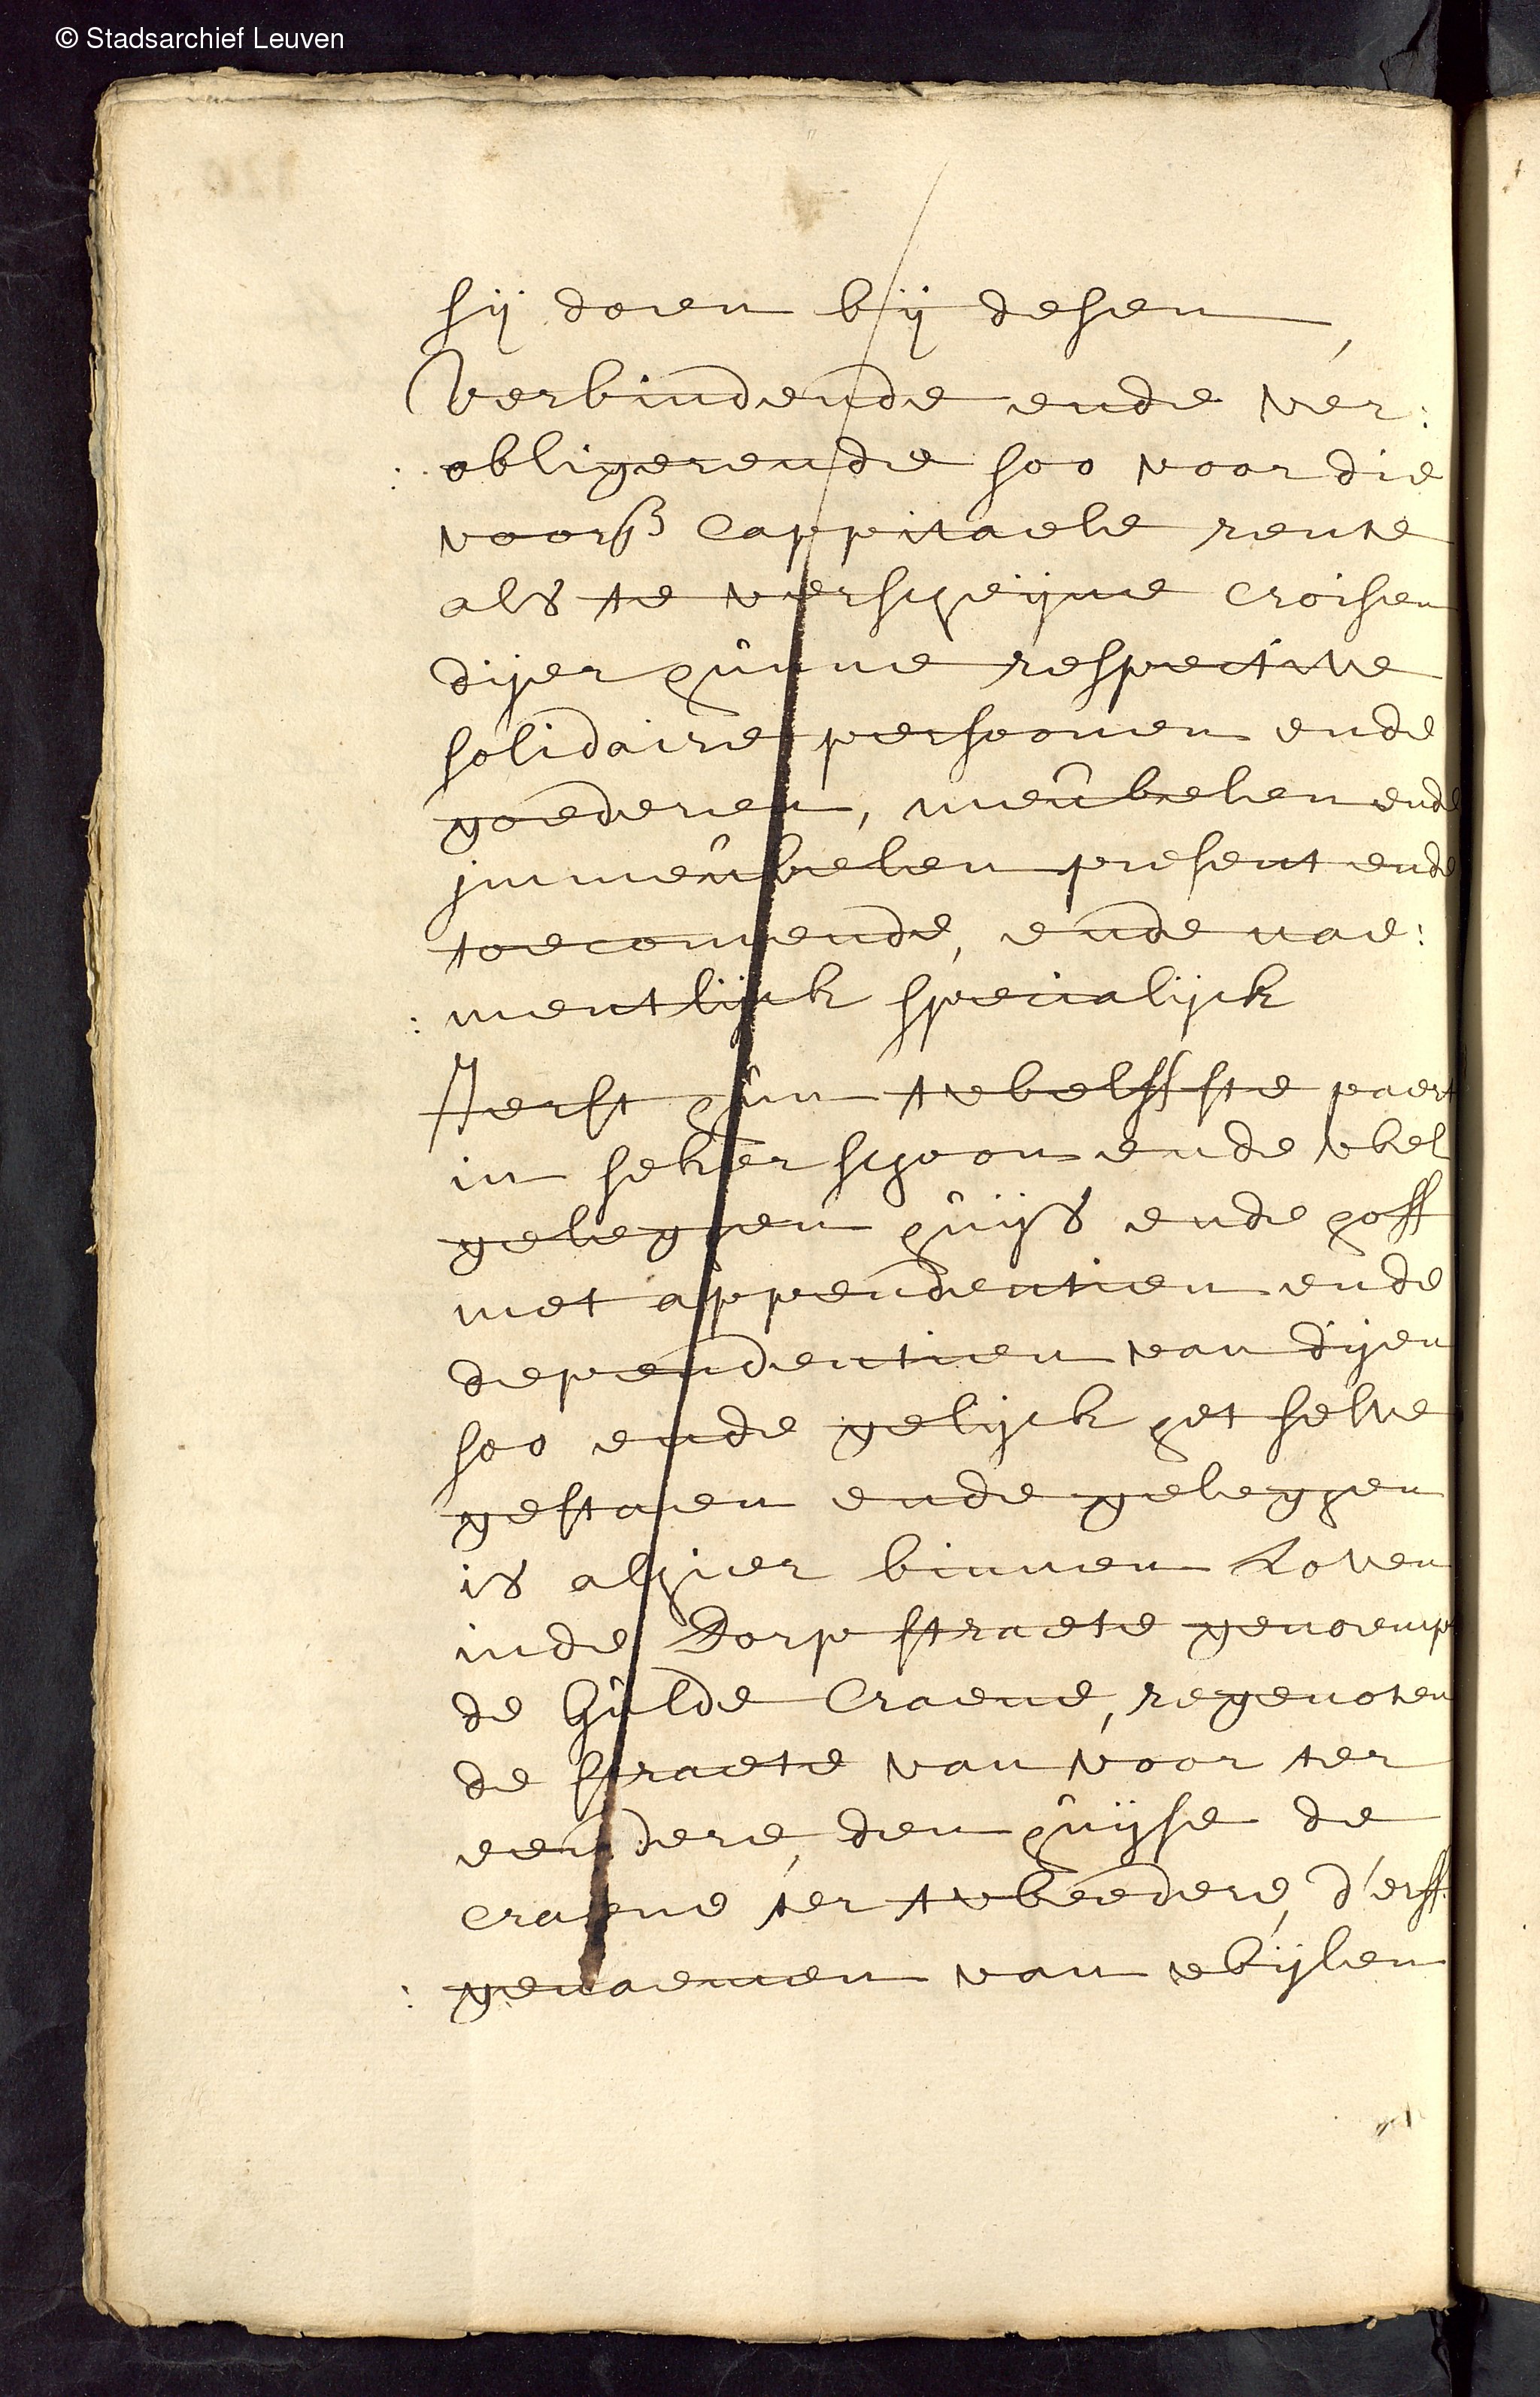 © Stadsarchief Leuven
sij doen bij desen,
Verbindende ende ver:
: obligerende soo voor die
voorß Cappitaele rente
als te verscheijne croisen
dijer hûnne respective
solidaire persoonen ende
goederen, meûbelen ende
jmmeûbelen present ende
toecomende, ende nae:
: mentlijck specialijck
Ierst hûn twelffste paert
in seker schoon ende wel
geleghen hûijs ende hoff
met appendentien ende
dependentien van dijen
soo ende gelijck het selve
gestaen ende geleghen
is alhier binnen Loven
inde Dorp straete genoempt
de Gûlde Craene, regenoten
de straete van voor ter
eendere, den hûijse de
Craene ter tweedere, d'erff
: genaemen van wijlen